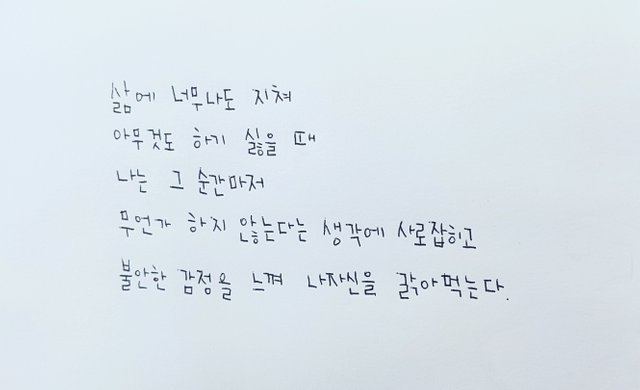 삶에 너무나도 지쳐
아무것도 하기 싫을 때
나는 그 순간마저
무언가 하지 않는다는 생각에 사로잡히고
불안한 감정을 느껴 나자신을 갉아먹는다.